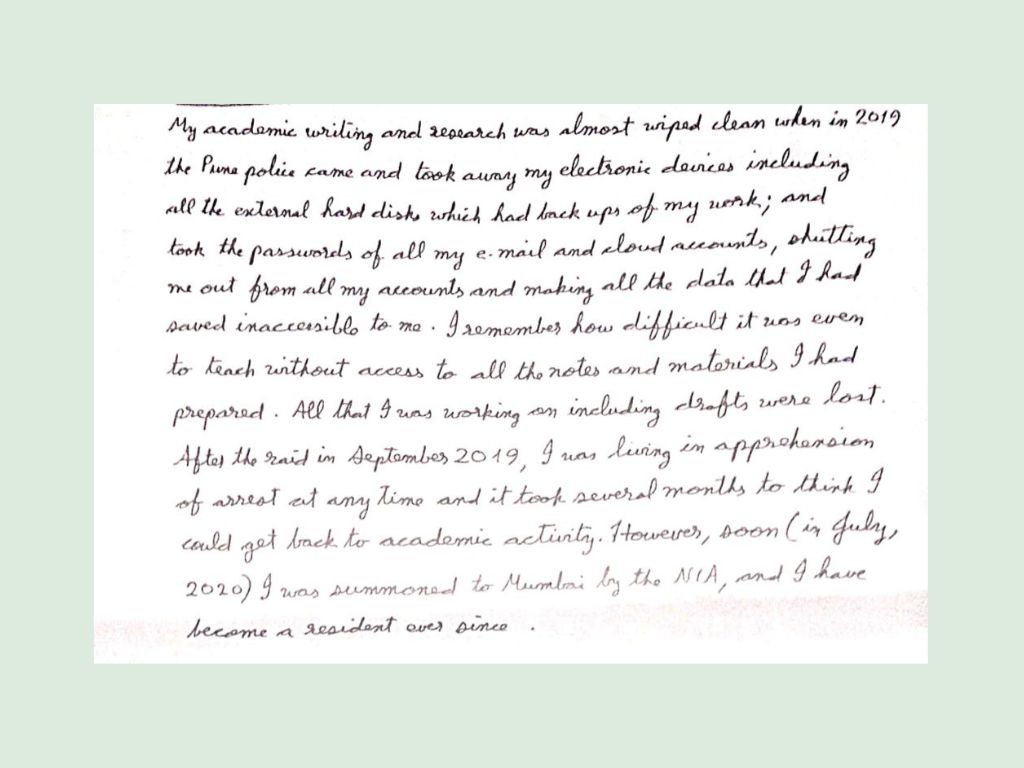 My academic writing and research was almost wiped clean when in 2019
the Pune police came and took away my electronic devices including
all the external hard disks which had back ups of my work; and
took the passwords of all my e-mail and cloud accounts, shutting
me out from all my accounts and making all the data that I had
saved inaccessible to me. I remember how difficult it was even
to teach without access to all the notes and materials I had
prepared. All that I was working on including drafts were lost.
After the raid in September 2019, I was living in apprehension
of arrest at any time and it took several months to think I
could get back to academic activity. However, soon (in July,
2020) I was summoned to Mumbai by the NIA, and I have
become a resident ever since.